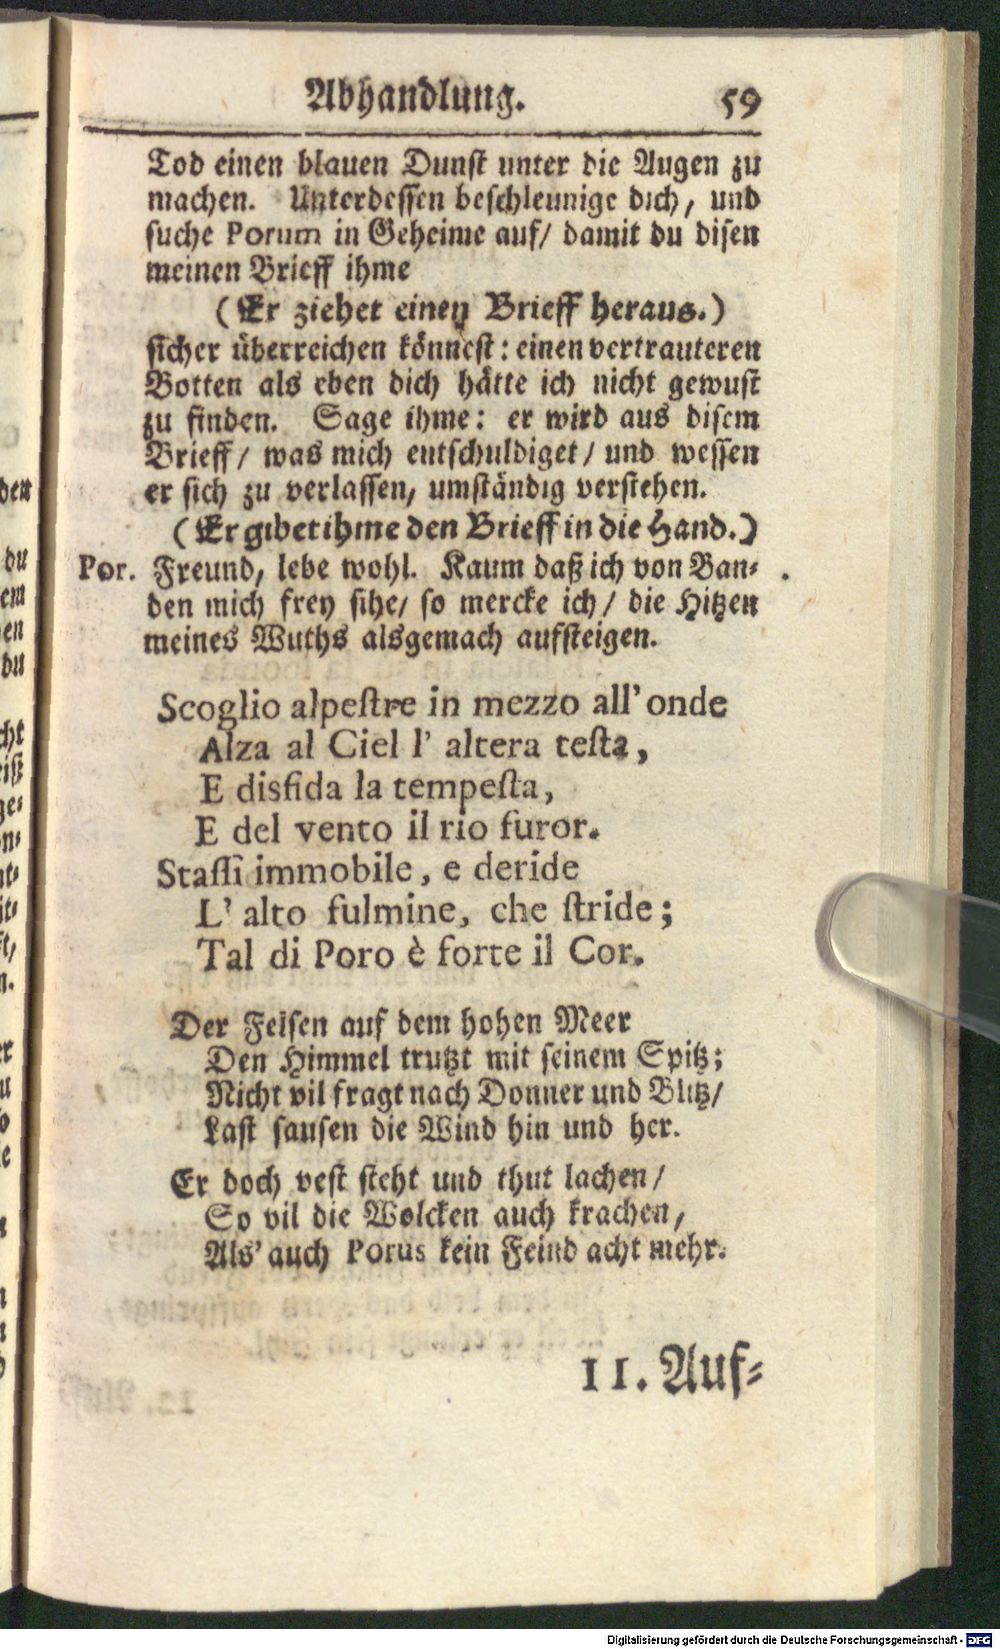 Abhandlung. 59
Tod einen blauen Dunst unter die Augen zu
machen. Unterdessen beschleunige dich, und
suche Porum in Geheime auf/ damit du disen
meinen Brieff ihme
(Er ziehet einen Brieff heraus.)
sicher überreichen könnest: einen vertrauteren
Botten als eben dich hätte ich nicht gewust
zu finden. Sage ihme: er wird aus disem
Brieff/ was mich entschuldiget/ und wessen
er sich zu verlassen, umständig verstehen.
(Er gibet ihme den Brieff in die Hand.)
Por. Freund, lebe wohl. Kaum daß ich von Ban-
den mich frey sihe/ so mercke ich/ die Hitzen
meines Wuths alsgemach aufsteigen.
Scoglio alpestre in mezzo all' onde
Alza al Ciel l' altera testa,
E disfida la tempesta,
E del vento il rio furor.
Stassi immobile, e deride
L' alto fulmine, che stride;
Tal di Poro è forte il Cor.
Der Felsen auf dem hohen Meer
Den Himmel trutzt mit seinem Spitz;
Nicht vil fragt nach Donner und Blitz/
Last sausen die Wind hin und her.
Er doch vest steht und thut lachen/
So vil die Wolcken auch krachen,
Als' auch Porus kein Feind acht mehr.
11. Auf-
den
du
em
en
du
cht
eist
ge-
on-
nt-
it-
ft/
n.
er
u
so
e
Digitalisierung gefördert durch die Deutsche Forschungsgemeinschaft - DFG